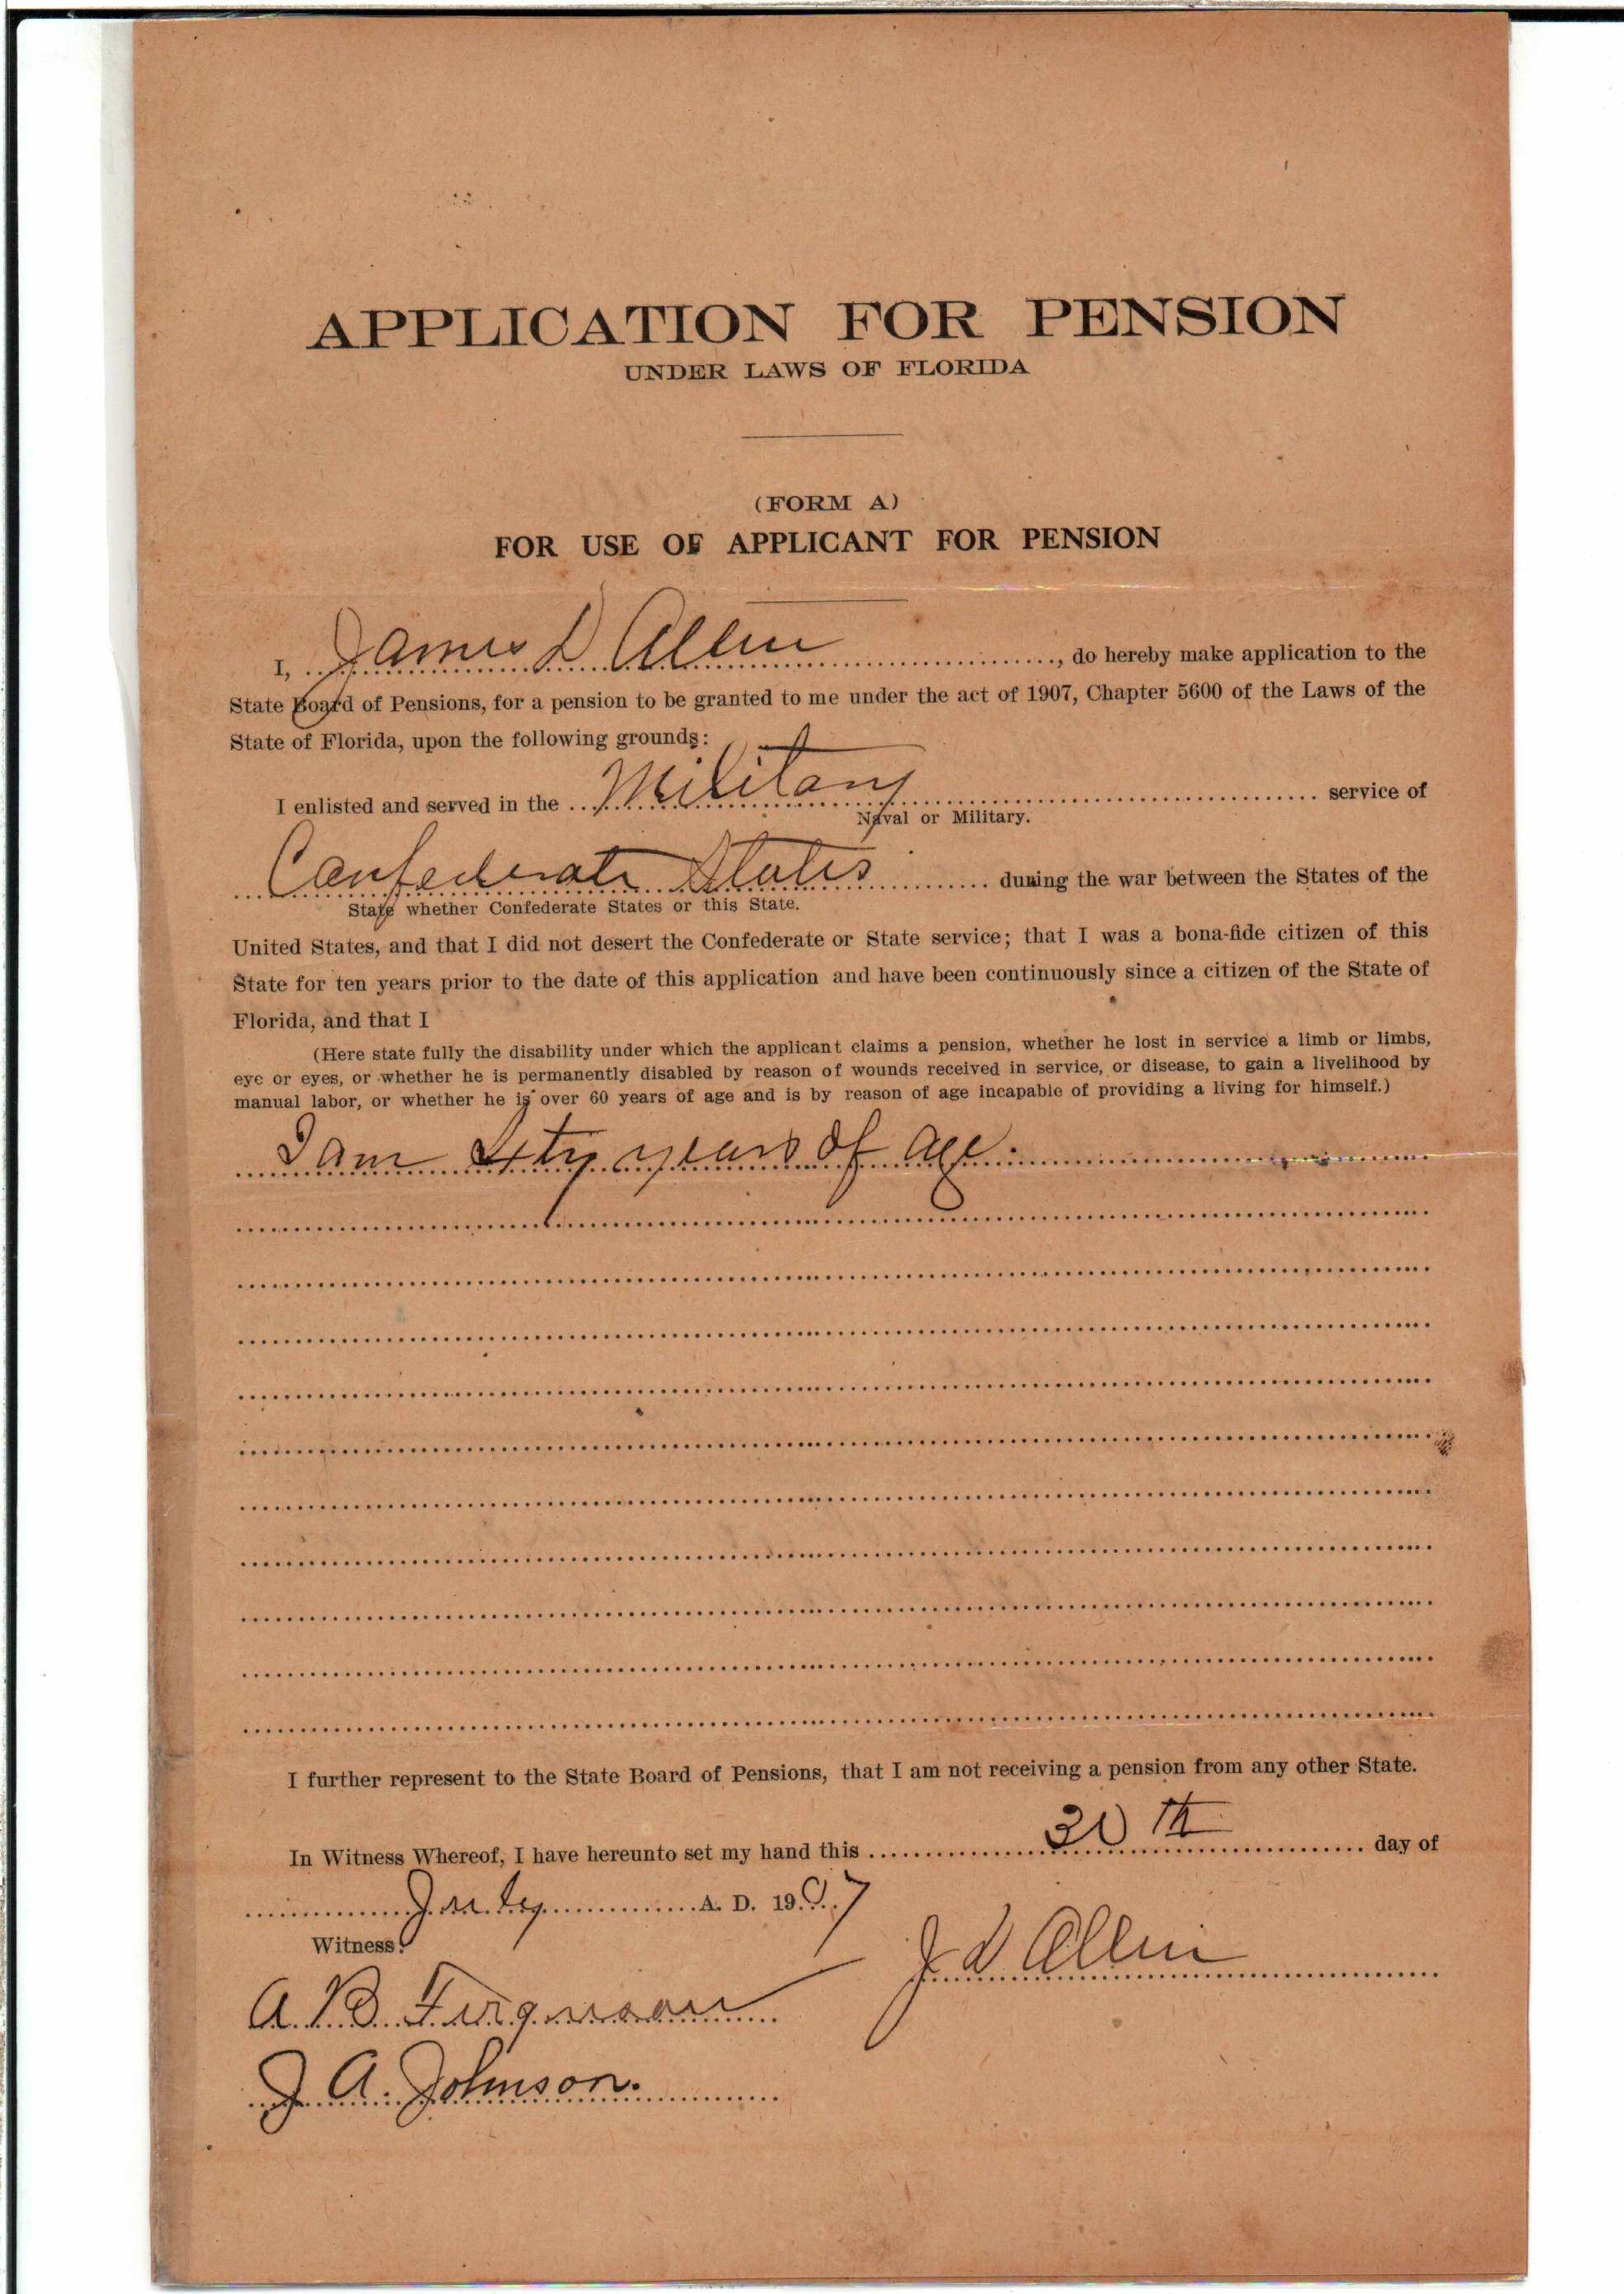 APPLICATION FOR PENSION
UNDER LAWS OF FLORIDA
(FORM A)
FOR USE OF APPLICANT FOR PENSION
I, James D Allen, do hereby make application to the
State Board of Pensions, for a pension to be granted to me under the act of 1907, Chapter 5600 of the Laws of the
State of Florida, upon the following grounds:
I enlisted and served in the Military service of
Naval or Military.
Confederate States during the war between the States of the
State whether Confederate States or this State.
United States, and that I did not desert the Confederate or State service; that I was a bona-fide citizen of this
State for ten years prior to the date of this application and have been continuously since a citizen of the State of
Florida, and that I
(Here state fully the disability under which the applicant claims a pension, whether he lost in service a limb or limbs,
eye or eyes, or whether he is permanently disabled by reason of wounds received in service, or disease, to gain a livelihood by
manual labor, or whether he is over 60 years of age and is by reason of age incapable of providing a living for himself.)
I am years of age.
I further represent to the State Board of Pensions, that I am not receiving a pension from any other State.
In Witness Whereof, I have hereunto set my hand this 30th day of
July A. D. 1907
Witness:
J D Allen
A. B. Ferguson
J. A. Johnson.